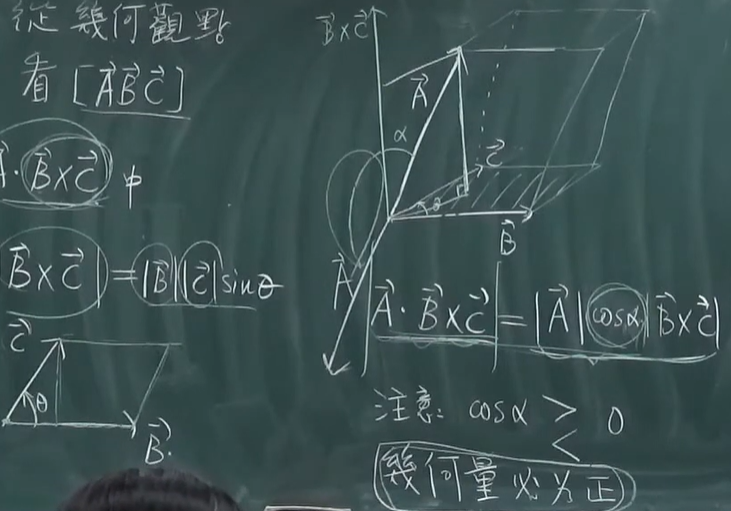 從幾何觀點
看 [A⃗B⃗C⃗]
A⃗·B⃗×C⃗ 中
|B⃗×C⃗| = |B⃗||C⃗|sinθ
C⃗
θ
B⃗
B⃗×C⃗
A⃗
α
C⃗
θ
B⃗
A⃗
|A⃗·B⃗×C⃗| = |A⃗||cosα||B⃗×C⃗|
注意: cosα > 0
<
幾何量必为正